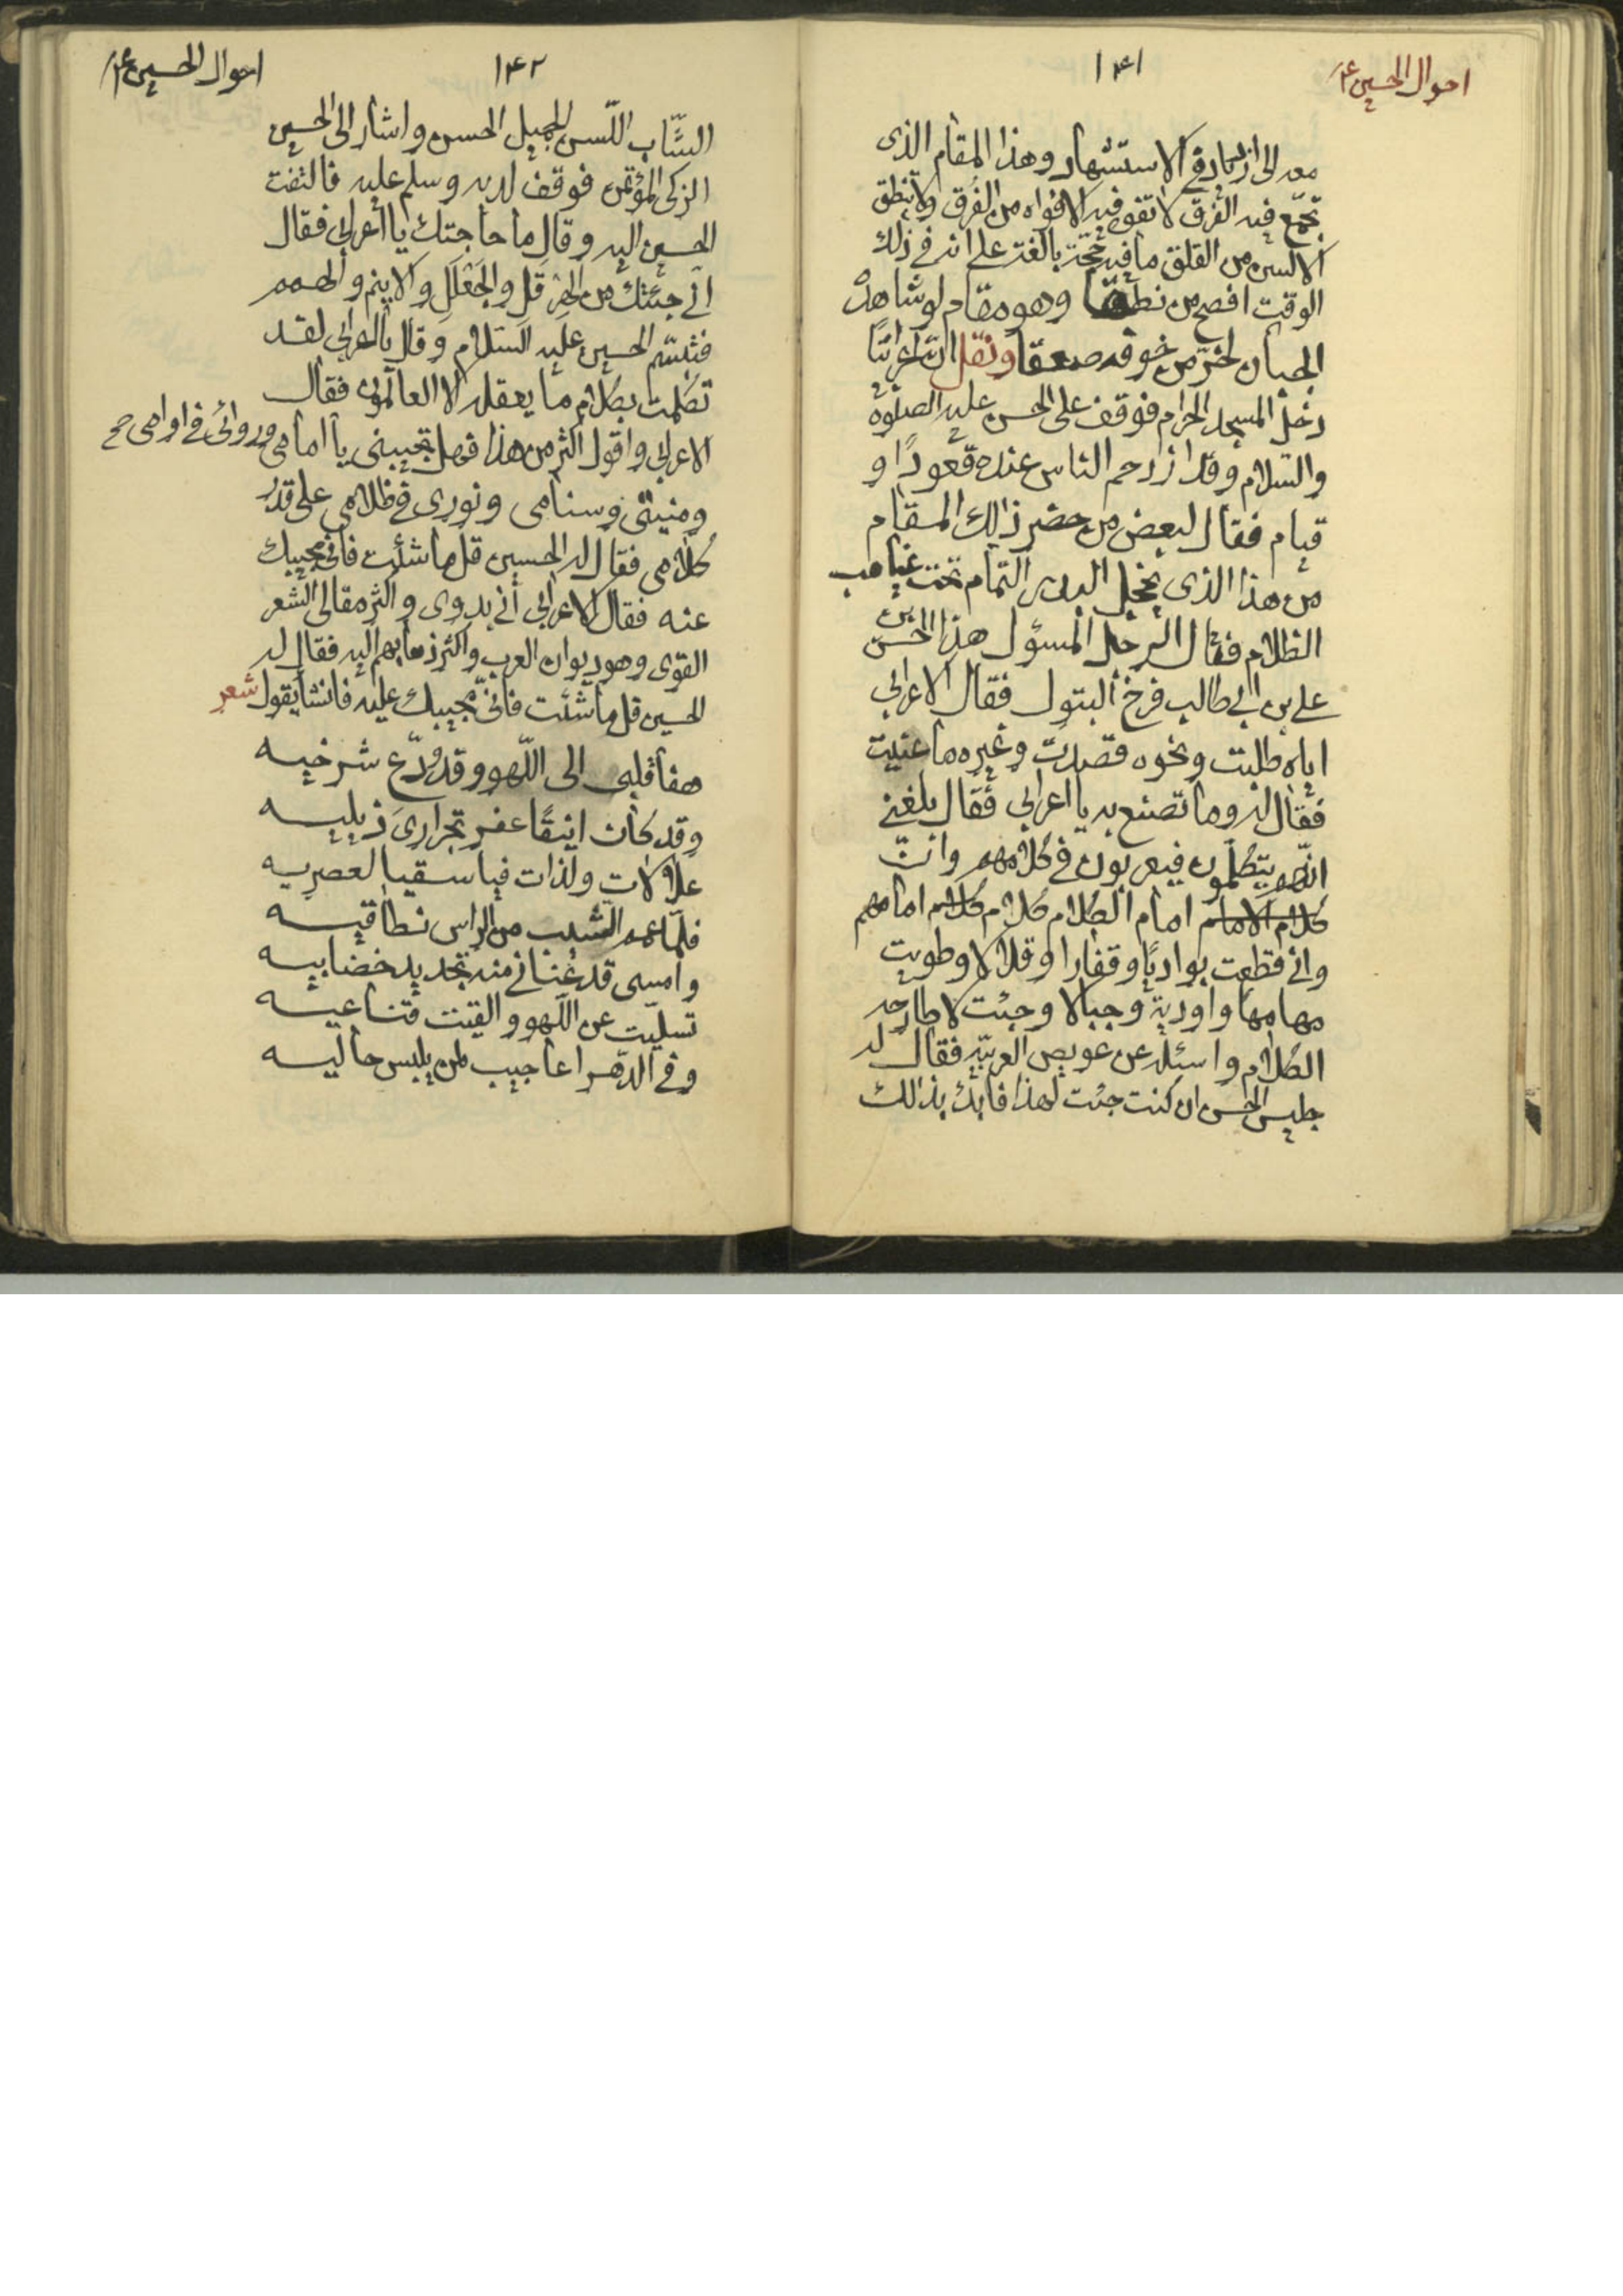 احوال الحسين ع
۱۴۱
معه لى ازيد في الاستشهار وهذا المقام الذى
تجمّع فيه الفرق لا تفوه فيه الافواه من الفرق ولا ينطق
الالسن من القلق ما فيه حجّة بالغة على انه في ذلك
الوقت افصح من نطقا وهو مقام لو شاهده
الجبان لخرّ من خوفه صعقا ونقل انّ اعرابيّا
دخل المسجد الحرام فوقف على الحسن عليه الصلوة
والسّلام وقد ازدحم الناس عنده قعودًا و
قيام فقال لبعض من حضر ذلك المقام
من هذا الذى يخجل البدر التمام تحت غياهب
الظلام فقال الرجل المسؤل هذا الحسن بن
على بن ابى طالب فرخ البتول فقال الاعرابى
اياه طلبت ونحوه قصدت وغيره ما عنيت
فقال له وما تصنع به يا اعرابى فقال بلغنى
انّهم يتكلّمون فيعربون في كلامهم وانّ
كلام الامام امام الكلام كلام كلام امامهم
وانى قطعت بواديًا وقفارا وقلالا وطويت
مهامها واودية وجبالا وجئت لاطارحه
الكلام واسئله عن عويص العربيّة فقال له
جليس الحسن ان كنت جئت لهذا فابدء بذالك
احوال الحسين ع
۱۴۲
الشّاب اللّسن الجميل الحسن واشار الى الحسين
الزكى المؤتمن فوقف لديه وسلم عليه فالتفت
الحسين اليه وقال ما حاجتك يا اعرابى فقال
انى جئتك من الهِرَقْل والجَعْلَل والاينم والهمم
فتبسّم الحسين عليه السّلام وقال يا اعرابى لقد
تكلمت بكلام ما يعقله الا العالمون فقال
الاعرابى واقول اكثر من هذا فهل تجيبنى يا امامى وروائى في اوامى صح
ومنيتى وسنامى ونورى في ظلامى على قدر
كلامى فقال له الحسين قل ما شئت فانى مجيبك
عنه فقال الاعرابى انى بدوى واكثر مقالى الشعر
القوى وهو ديوان العرب واكثر ذهابهم اليه فقال له
الحسين قل ما شئت فانّى مجيبك عليه فانشأ يقول شعر
هفا قلبى الى اللّهو وقد ودّع شرخيه
وقد كان انيقًا عفر تجرارىَ ذيليه
علالات ولذات فيا سقيا لعصريه
فلمّا عمم الشيب من الراس نطاقيه
وامسى قد عنانى منه تجديد خضابيه
تسليت عن اللّهو والقيت قناعيه
وفى الدّهر اعاجيب لمن يلبس حاليه